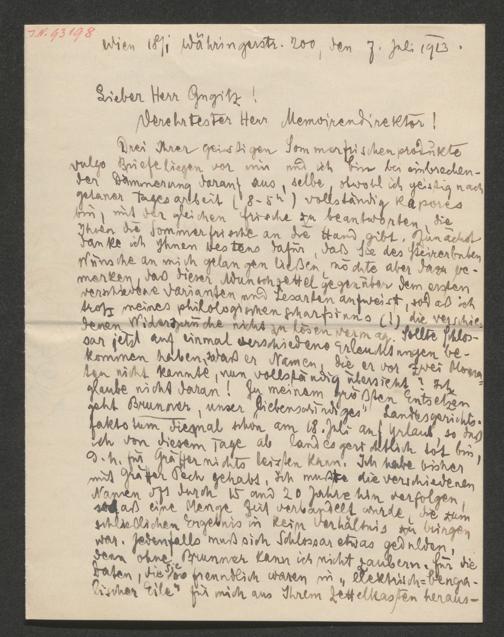 I.N. 93198
Wien 18/1 Währingerstr. 200, den 7. Juli 1913.
Lieber Herr Gugitz!
Verehrtester Herr Memoirendirektor!
Drei Ihrer geistigen Sommerfrischenprodukte
vulgo Briefe liegen vor mir und ich bin bei einbrechen-
der Dämmerung darauf aus, selbe, obwohl ich geistig nach
getaner Tagesarbeit (8-5h) vollständig kapores
bin, mit der gleichen Frische zu beantworten, die
Ihnen die Sommerfrische an die Hand gibt. Zunächst
danke ich Ihnen bestens dafür, daß Sie des Steirerbuben
Wünsche an mich gelangen ließen, möchte aber dazu be-
merken, daß dieser Wunschzettel gegenüber dem ersten
verschiedene Varianten und Lesarten aufweist, sodaß ich
trotz meines philologischen Scharfsinns (!) die verschie-
denen Widersprüche nicht zu lösen vermag. Sollte Schlos-
sar jetzt auf einmal verschiedene Erleuchtungen be-
kommen haben, daß er Namen, die er vor zwei Mona-
ten nicht kannte, nun vollständig übersieht? Ich
glaube nicht daran! Zu meinem größten Entsetzen
geht Brunner, unser „liebenswürdiges" Landesgerichts-
faktotum diesmal schon am 18. Juli auf Urlaub, so daß
ich von diesem Tage ab landesgerichtlich tot bin,
d. h. für Gräffer nichts leisten kann. Ich habe bisher
mit Gräffer Pech gehabt. Ich mußte die verschiedenen
Namen oft durch 15 und 20 Jahre hin verfolgen,
sodaß eine Menge Zeit vertandelt wurde, die zum
schließlichen Ergebnis in kein Verhältnis zu bringen
war. Jedenfalls muß sich Schlossar etwas gedulden,
denn ohne Brunner kann ich nicht zaubern. Für die
Daten, die Sie so freundlich waren in „elektrisch-benga-
lischer Eile" für mich aus Ihrem Zettelkasten heraus-